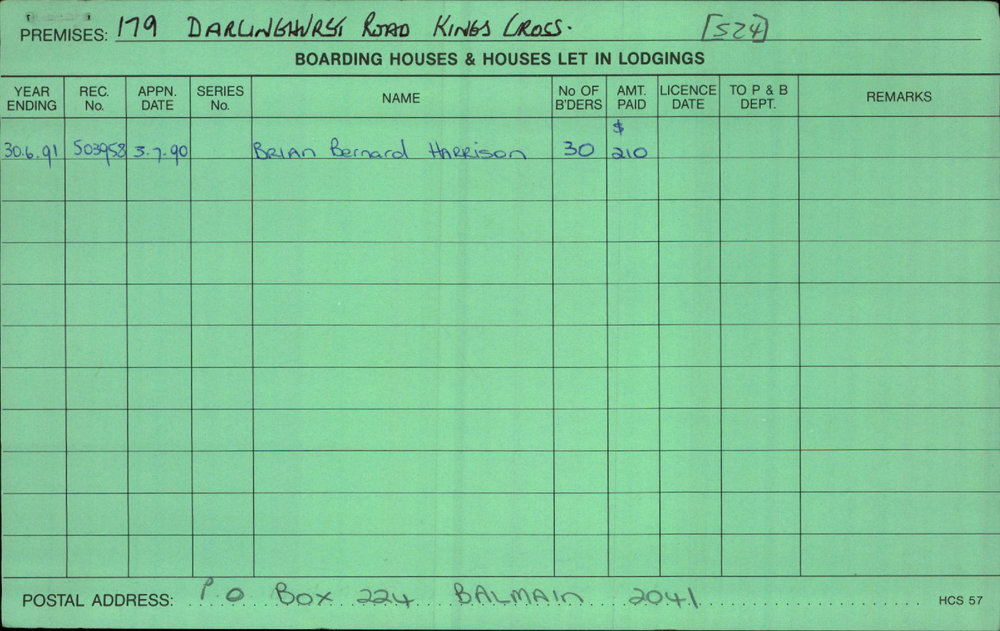 PREMISES: 179 DARLINGHURST ROAD KINGS CROSS. [524]
BOARDING HOUSES & HOUSES LET IN LODGINGS
YEAR ENDING REC. No. APPN. DATE SERIES No. NAME No OF B'DERS AMT. PAID LICENCE DATE TO P & B DEPT. REMARKS
$
30.6.91 503958 3.7.90 BRIAN Bernard HARRISON 30 210
POSTAL ADDRESS: P O Box 224 BALMAIN 2041 HCS 57